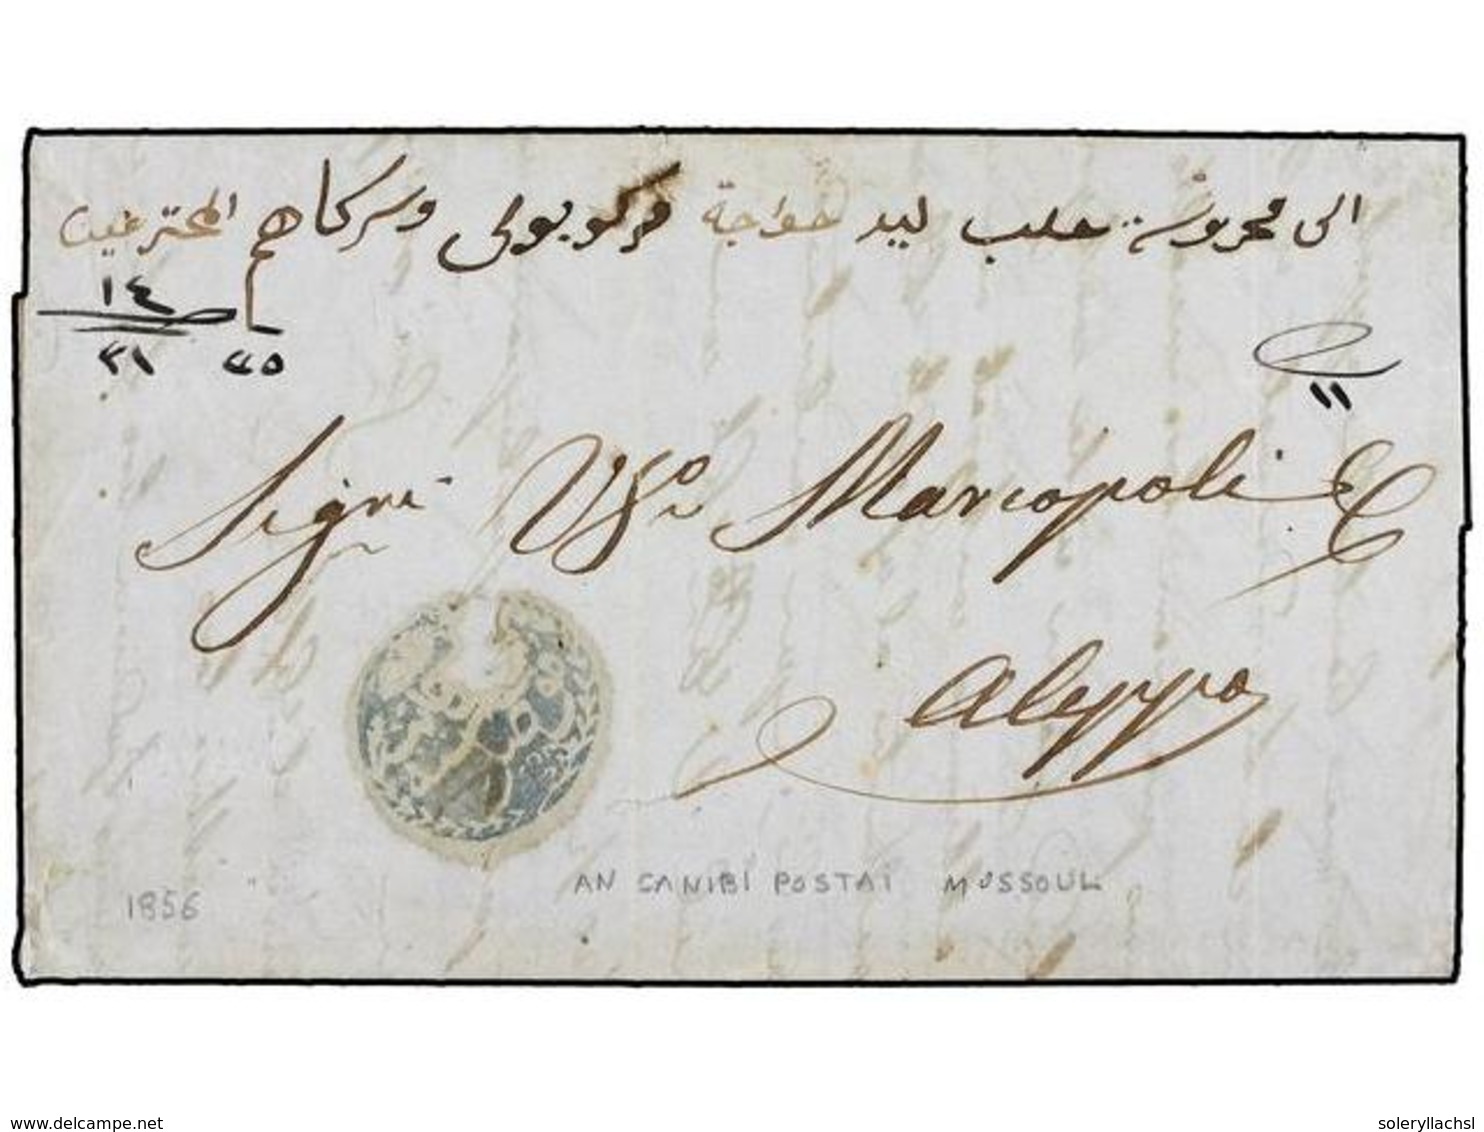 الى محروسة حلب ليد خواجة مركوبولي وشركاهم المحترمين
١٤
٣١ ٤٥
١١
Sigri Vzo Marcopoli & C
Aleppo
AN CANIBI POSTAI MOSSOUL
1856
delcampe.net
soleryllachsl